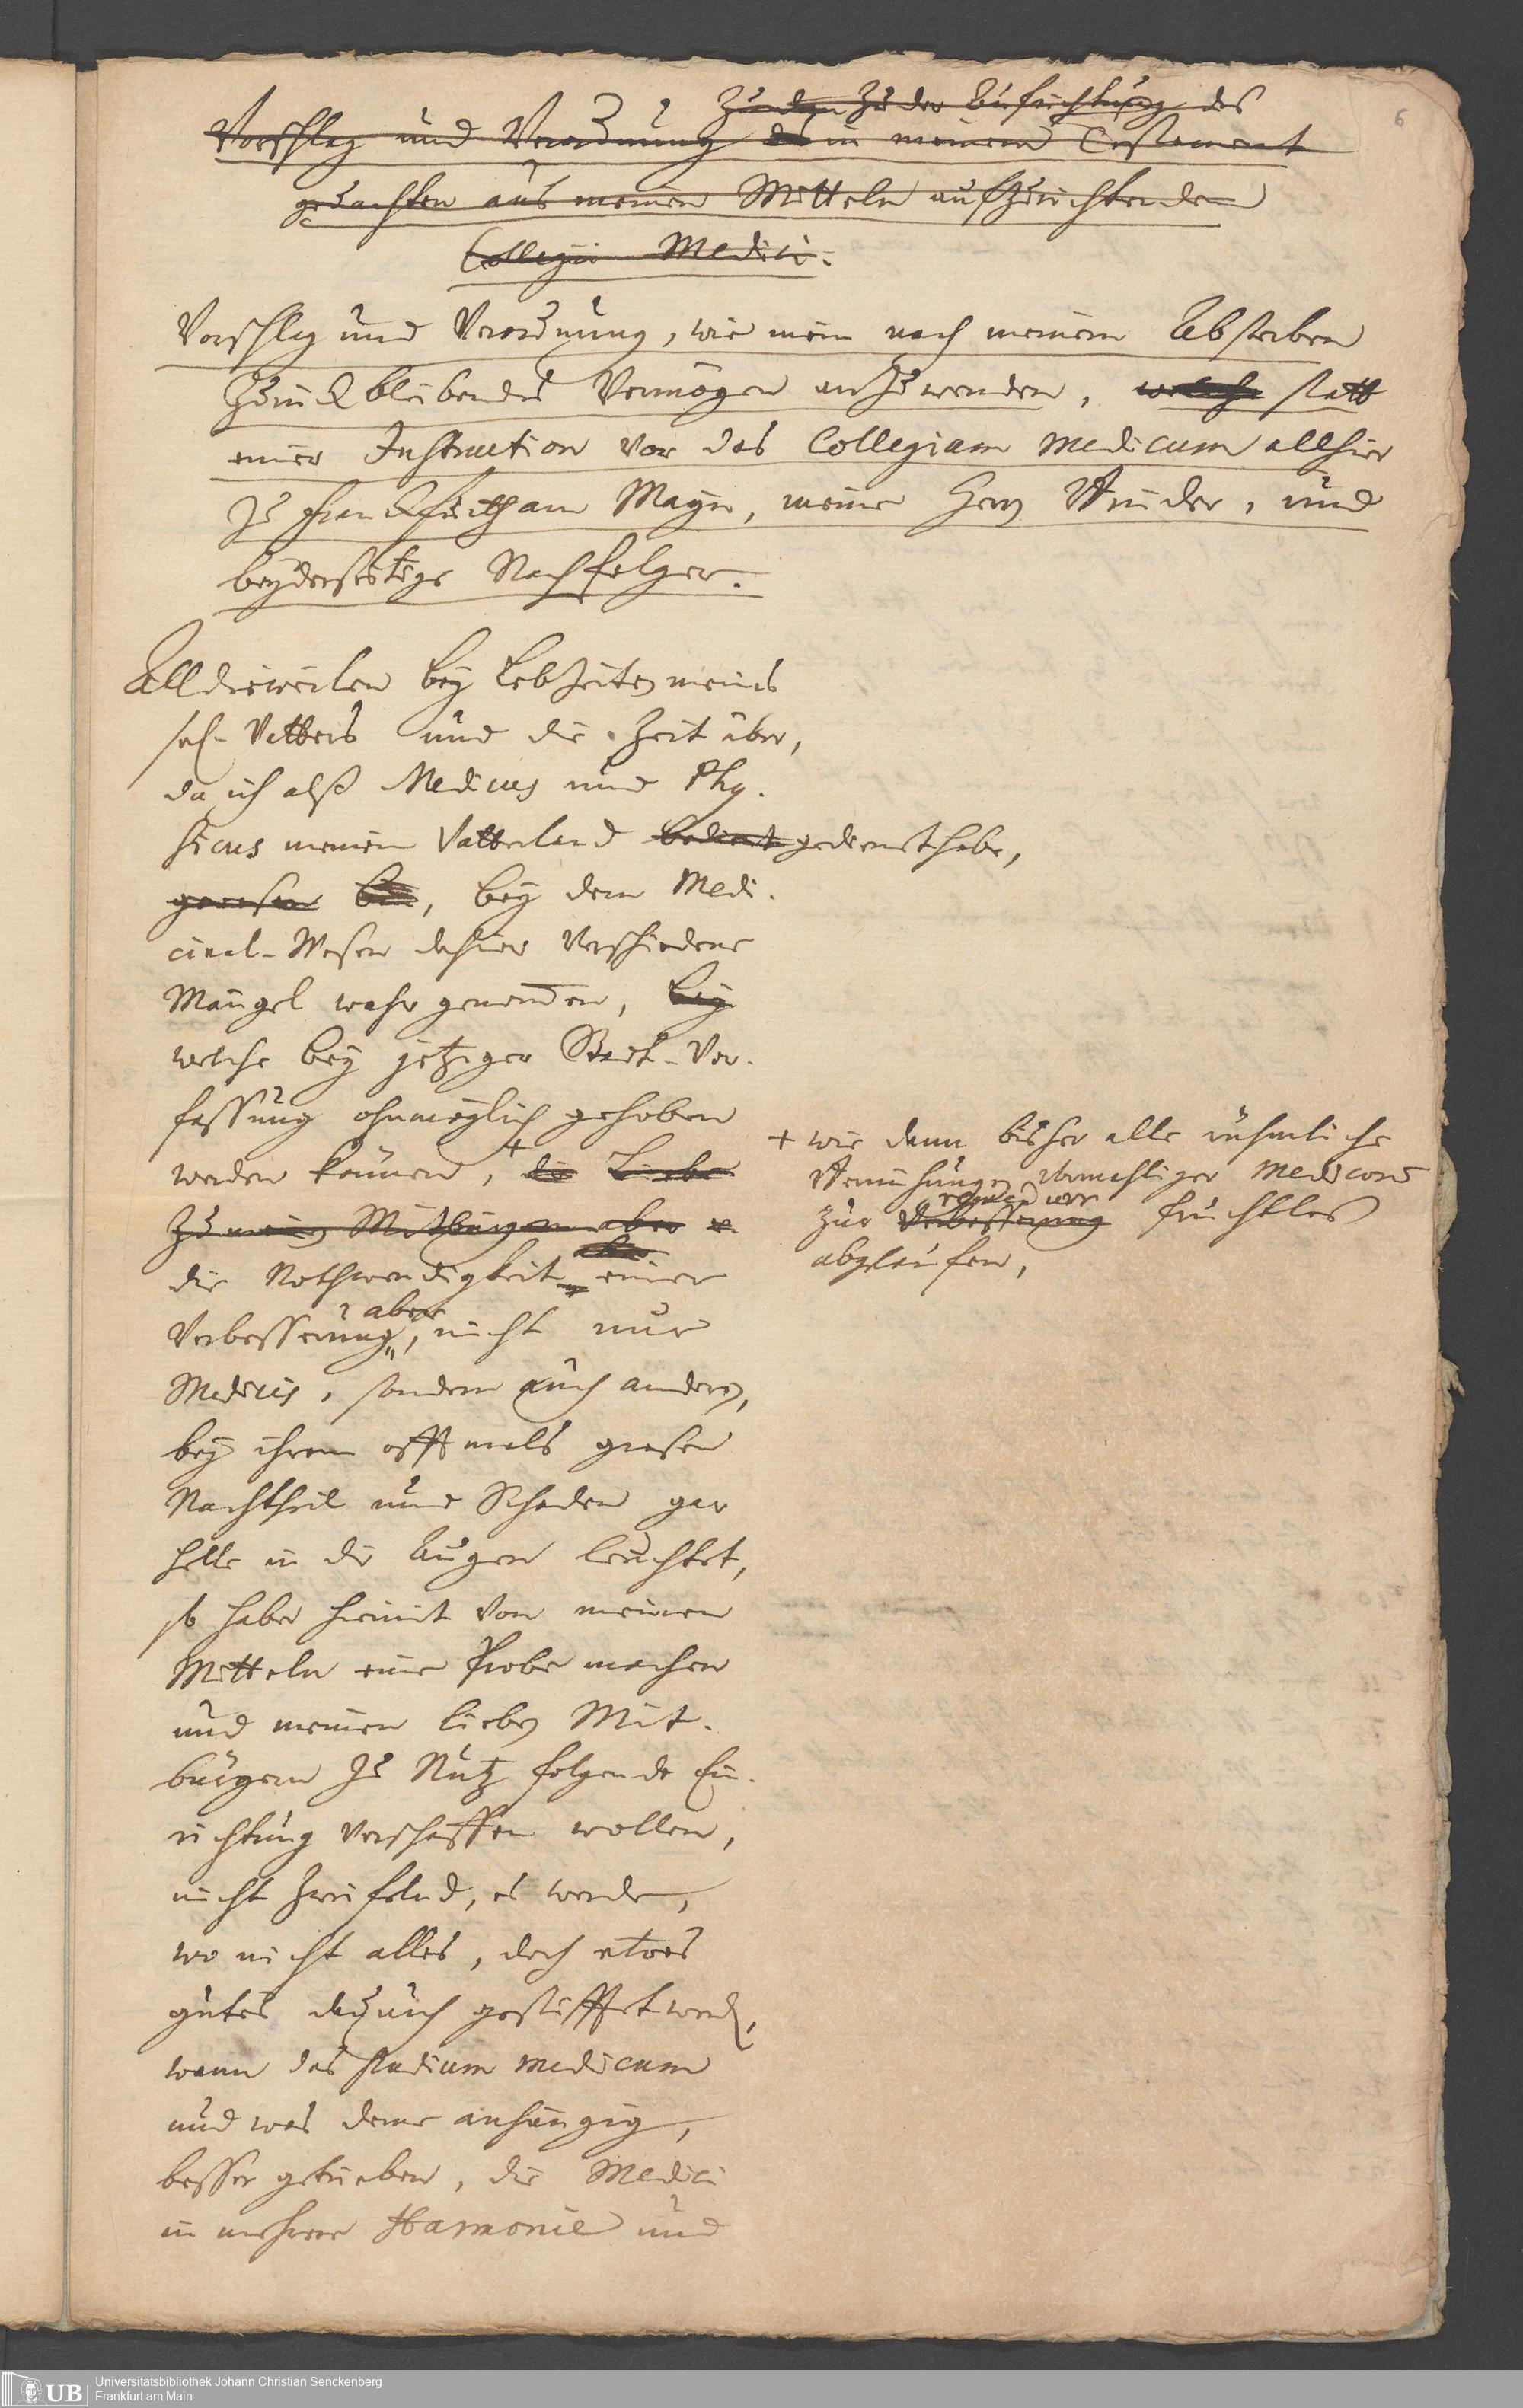 6
zu dem zu der Aufrichtung des
Vorschlag und Verordnung des in meinem Testament
gedachten aus meinen Mitteln aufzurichtenden
Collegii Medici.
Vorschlag und Verordnung, wie mein nach meinem Absterben
zurückbleibendes Vermögen anzuwenden, welche statt
einer Instruction vor das Collegium medicum allhier
zu Franckfurth am Mayn, meine Herrn Brüder, und
beyderseitige Nachfolger.
Alldieweilen bey Lebzeiten meines
sel. Vatters und die Zeit über,
da ich alß Medicus und Phy-
sicus meinem Vatterland bedient gedienet habe,
gewesen bin, bey dem Medi-
cinal-Wesen dahier verschiedene
Mängel wahrgenommen, bey
welche bey jetziger Statt-Ver-
fassung ohnmöglich gehoben
werden können, + die Liebe
zu meinen Mitbürgern aber u.
die Nothwendigkeit einer
aber
Verbesserung, nicht nur
Medicis, sondern auch anderen,
bey ihrem offtmals grosen
Nachtheil und Schaden gar
helle in die Augen leuchtet,
so habe hiemit von meinen
Mitteln eine Probe machen
und meinen lieben Mit-
bürgern zu Nutz folgende Ein-
richtung verschaffen wollen,
nicht zweifelnd, es werde,
wo nicht alles, doch etwas
gutes dadurch gestifftet werden,
wann das studium medicum
und was deme anhängig,
besser getrieben, die Medici
in mehrere Harmonie und
+ wie dann bisher alle rühmliche
Bemühungen vormahliger Medicorum
zur Verbesserung fruchtlos
abgelaufen,
UB
Universitätsbibliothek Johann Christian Senckenberg
Frankfurt am Main